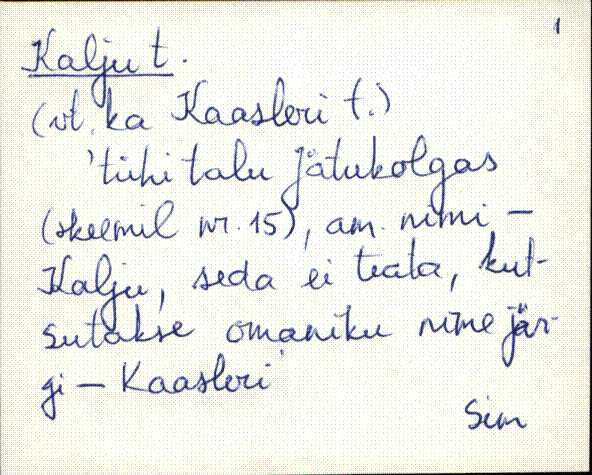 1
Kalju t.
(vt. ka Kaasleri t.)
'tühi talu Jätukolgas
(skeemil nr. 15), am. nimi –
Kalju, seda ei teata, kut-
sutakse omaniku nime jär-
gi – Kaasleri'
Sim